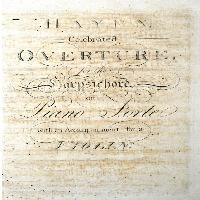 HAYDN'S
Celebrated
OVERTURE,
for the
Harpsichord
or
Piano Forte
with an Accompaniment for a
VIOLIN.